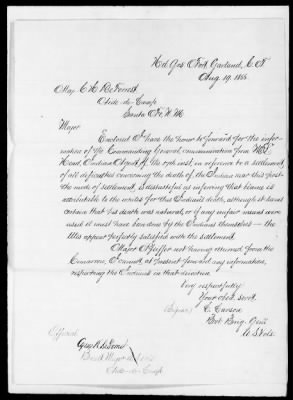 Hd Qrs Fort Garland, C. T.
Aug. 19. 1866
Maj. C. H. DeForrest
Aide-de-Camp
Santa Fe N. M.
Major
Enclosed I have the honor to forward for the infor-
mation of the Commanding General communication from
Head, Indian Agent of the in reference to a settlement
of all difficulties concerning the death of the Indian near this post.
The mode of settlement is distasteful as inferring that blame is
attributable to the whites for this Indian's death, although it is
certain that his death was natural, or if any unfair means were
used it must have been done by the Indians themselves — the
Utes appear perfectly satisfied with the settlement.
Major Pfeiffer not having returned from the
Cimarron I cannot at present forward any information
respecting the Indians in that direction
Very respectfully
Your obed. servt.
(Signed) C. Carson
Bvt Brig. Genl
U. S. Vols.
Official
Bvt Major
Aide-de-Camp